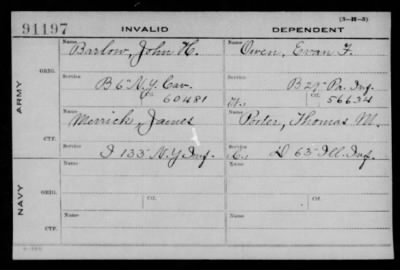 (3-II-5)
91197 INVALID DEPENDENT
Name Barlow, John H. Name Owen, Evan F.
ARMY
ORIG.
Service B 6" N.Y. Cav. Service B 29" Pa. Inf.
Ctf. 60481 W. Ctf. 56634
Name Merrick, James Name Porter, Thomas M.
CTF.
Service I 135 N.Y Inf. Service D 65 Ill. Inf.
Name Name
NAVY
ORIG.
Service Ctf. Service Ctf.
Name Name
CTF.
Service Service